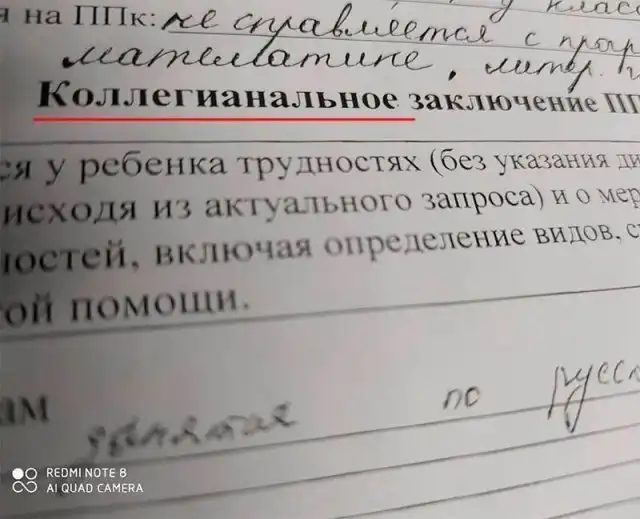 я на ППк: не справляется с прогр
математике, литер.
Коллегианальное заключение ПП
ся у ребенка трудностях (без указания ди
исходя из актуального запроса) и о мер
ностей, включая определение видов, с
ой помощи.
ам занятия по русск
REDMI NOTE 8
AI QUAD CAMERA